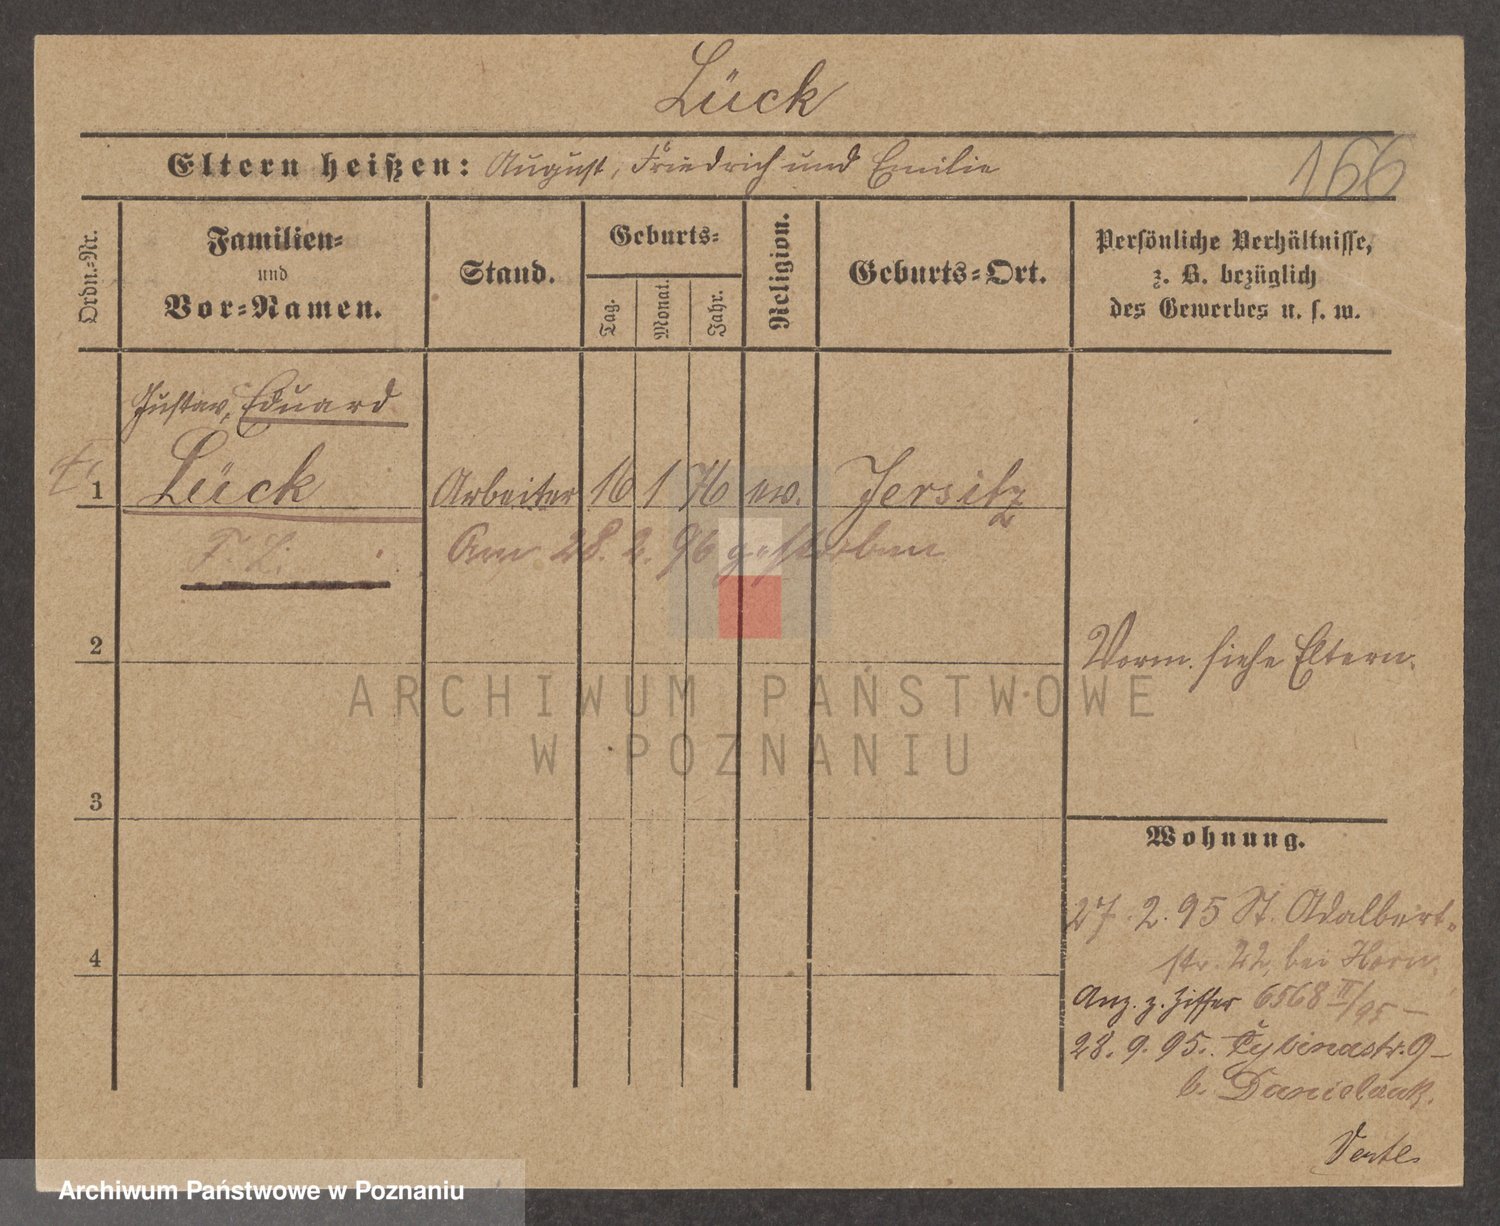 Lück
Eltern heißen: August, Friedrich und Emilie
166
Ordn.-Nr.
Familien-
und
Vor-Namen.
Stand.
Geburts-
Tag.
Monat.
Jahr.
Religion.
Geburts-Ort.
Persönliche Verhältnisse,
z. B. bezüglich
des Gewerbes u. s. w.
Gustav, Eduard
1 Lück Arbeiter 16 1 76 ev. Jersitz
F. L.
Am 28. 2. 96 gestorben
2
Vorm. siehe Eltern.
ARCHIWUM PAŃSTWOWE
W POZNANIU
3
Wohnung.
27. 2. 95 St. Adalbert-
str. 22, bei Horn,
4
Anz. z. Ziffer 6568 II/95 –
28. 9. 95. Cybinastr. 9 –
b. Danielaak.
Verte
Archiwum Państwowe w Poznaniu